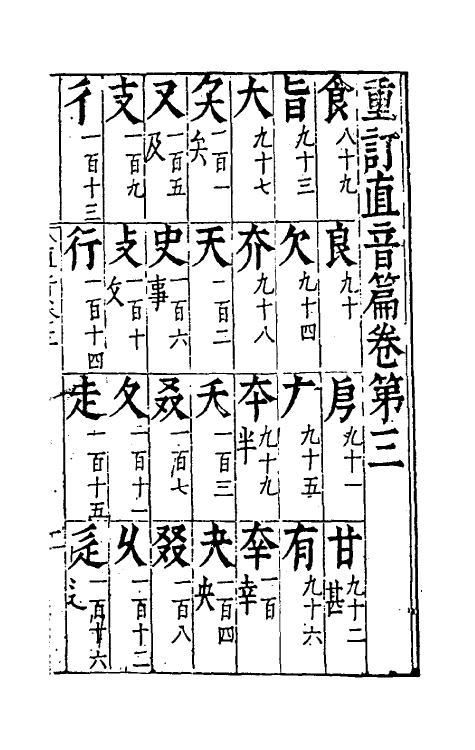 重訂直音篇卷第三
食 八十九 良 九十 㐆 九十一 甘 九十二 甚
旨 九十三 欠 九十四 𠂇 九十五 有 九十六
大 九十七 夰 九十八 夲 九十九 半 㚔 一百 幸
矢 一百一 矣 天 一百二 夭 一百三 夬 一百四 央
又 一百五 及 史 一百六 事 叒 一百七 叕 一百八
支 一百九 攴 一百十 攵 夂 一百十一 乆 一百十二
彳 一百十三 行 一百十四 走 一百十五 辵 一百十六 辶